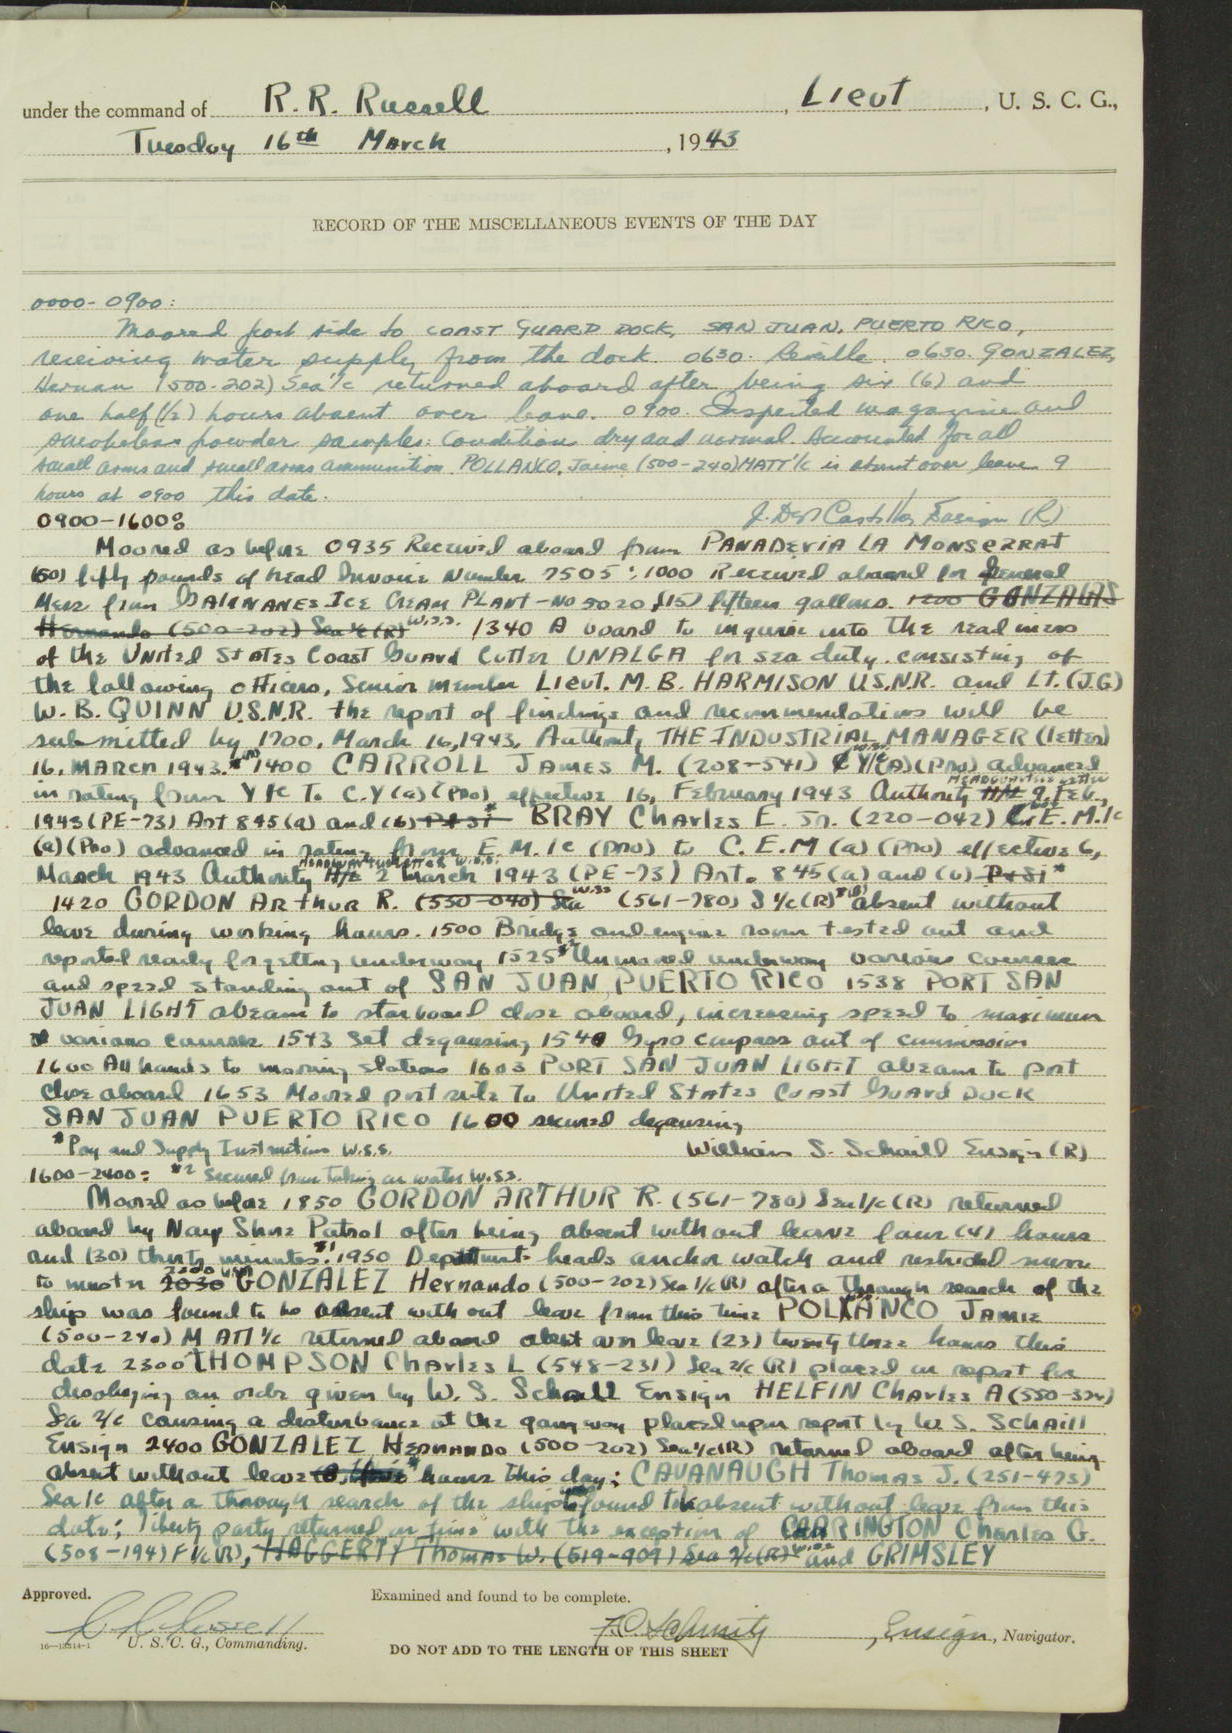 under the command of R. R. Russell, Lieut, U. S. C. G.,
Tuesday 16th March, 1943
RECORD OF THE MISCELLANEOUS EVENTS OF THE DAY
0000-0900:
Moored port side to COAST GUARD DOCK, SAN JUAN, PUERTO RICO,
receiving water supply from the dock. 0630. Reveille. 0630. GONZALEZ,
Hernan (500-202) Sea 1/c returned aboard after being six (6) and
one half (1/2) hours absent over leave. 0900. Inspected magazine and
smokeless powder samples: Condition dry and normal. Accounted for all
small arms and small arms ammunition. POLLANCO, Jaime (500-240) MATT 1/c is absent over leave 9
hours at 0900 this date.
J. Del Castillo Ensign (R)
0900-1600:
Moored as before 0935 Received aboard from PANADERIA LA MONSERRAT
(50) fifty pounds of bread Invoice Number 7505; 1000 Received aboard for General
Mess from ICE CREAM PLANT - No 5020, (15) fifteen gallons. 1200 GONZALAS
Hernando (500-202) Sea 1/c (R) W.S.S. 1340 A board to inquire into the readiness
of the United States Coast Guard Cutter UNALGA for sea duty. consisting of
the following officers, Senior member Lieut. M. B. HARMISON U.S.N.R. and Lt. (J.G)
W. B. QUINN U.S.N.R. the report of findings and recommendations will be
submitted by 1700, March 16, 1943, Authority THE INDUSTRIAL MANAGER (letter)
16, MARCH 1943. 1400 CARROLL James M. (208-541) (A)(PRO) advanced
in rating from Y1c To C.Y (a) (PRO) effective 16, February 1943 Authority HEADQUARTERS letter 9 Feb,
1943 (PE-73) Art 845(a) and (b) P & SI* BRAY Charles E. Jr. (220-042) E.M.1c
(a) (PRO) advanced in rating from E.M.1c (PRO) to C.E.M (a) (PRO) effective 6,
March 1943 Authority HEADQUARTERS LETTER W.S.S. 2 March 1943 (PE-73) Art. 845 (a) and (b) P & SI*
1420 GORDON Arthur R. (550-040) Sea W.S.S (561-780) S 1/c (R) absent without
leave during working hours. 1500 Bridge and engine room tested out and
reported ready for getting underway 1525 *2 Unmoored underway various courses
and speed standing out of SAN JUAN, PUERTO RICO 1538 PORT SAN
JUAN LIGHT abeam to starboard close aboard, increasing speed to maximum
various courses 1543 Set degausing 1540 Gyro compass out of commission
1600 All hands to mooring stations 1603 PORT SAN JUAN LIGHT abeam to port
close aboard 1653 Moored port side to United States Coast Guard Dock
SAN JUAN PUERTO RICO 1600 secured degausing
*Pay and Supply Instruction W.S.S. William S. Schaill Ensign (R)
1600-2400: *2 Secured from taking on water W.S.S.
Moored as before 1850 GORDON ARTHUR R. (561-780) Sea 1/c (R) returned
aboard by Navy Shore Patrol after being absent without leave four (4) hours
and (30) thirty minutes. *1 1950 Depatment heads anchor watch and restricted men
to muster 2030 2200 W.S.S GONZALEZ Hernando (500-202) Sea 1/c (R) after a through search of the
ship was found to be absent with out leave from this time POLLANCO Jamie
(500-240) M ATT 1/c returned aboard absent over leave (23) twenty three hours this
date 2300 THOMPSON Charles L (548-231) Sea 2/c (R) placed on report for
disobeying an order given by W. S. Schaill Ensign HELFIN Charles A (550-324)
Sea 2/c causing a disturbance at the gangway placed upon report by W. S. Schaill
Ensign 2400 GONZALEZ Hernando (500-202) Sea 1/c (R) returned aboard after being
absent without leave hours this day; CAVANAUGH Thomas J. (251-475)
Sea 1c after a through search of the ship found to be absent without leave from this
date; liberty party returned on time with the exception of CARRINGTON Charles G.
(508-194) F 1/c (R), HAGGERTY Thomas W. (519-909) Sea 2/c (R) W.S.S and GRIMSLEY
Approved. Examined and found to be complete.
R. R. Russell F. C. Schmitz, Ensign, Navigator.
U. S. C. G., Commanding.
DO NOT ADD TO THE LENGTH OF THIS SHEET